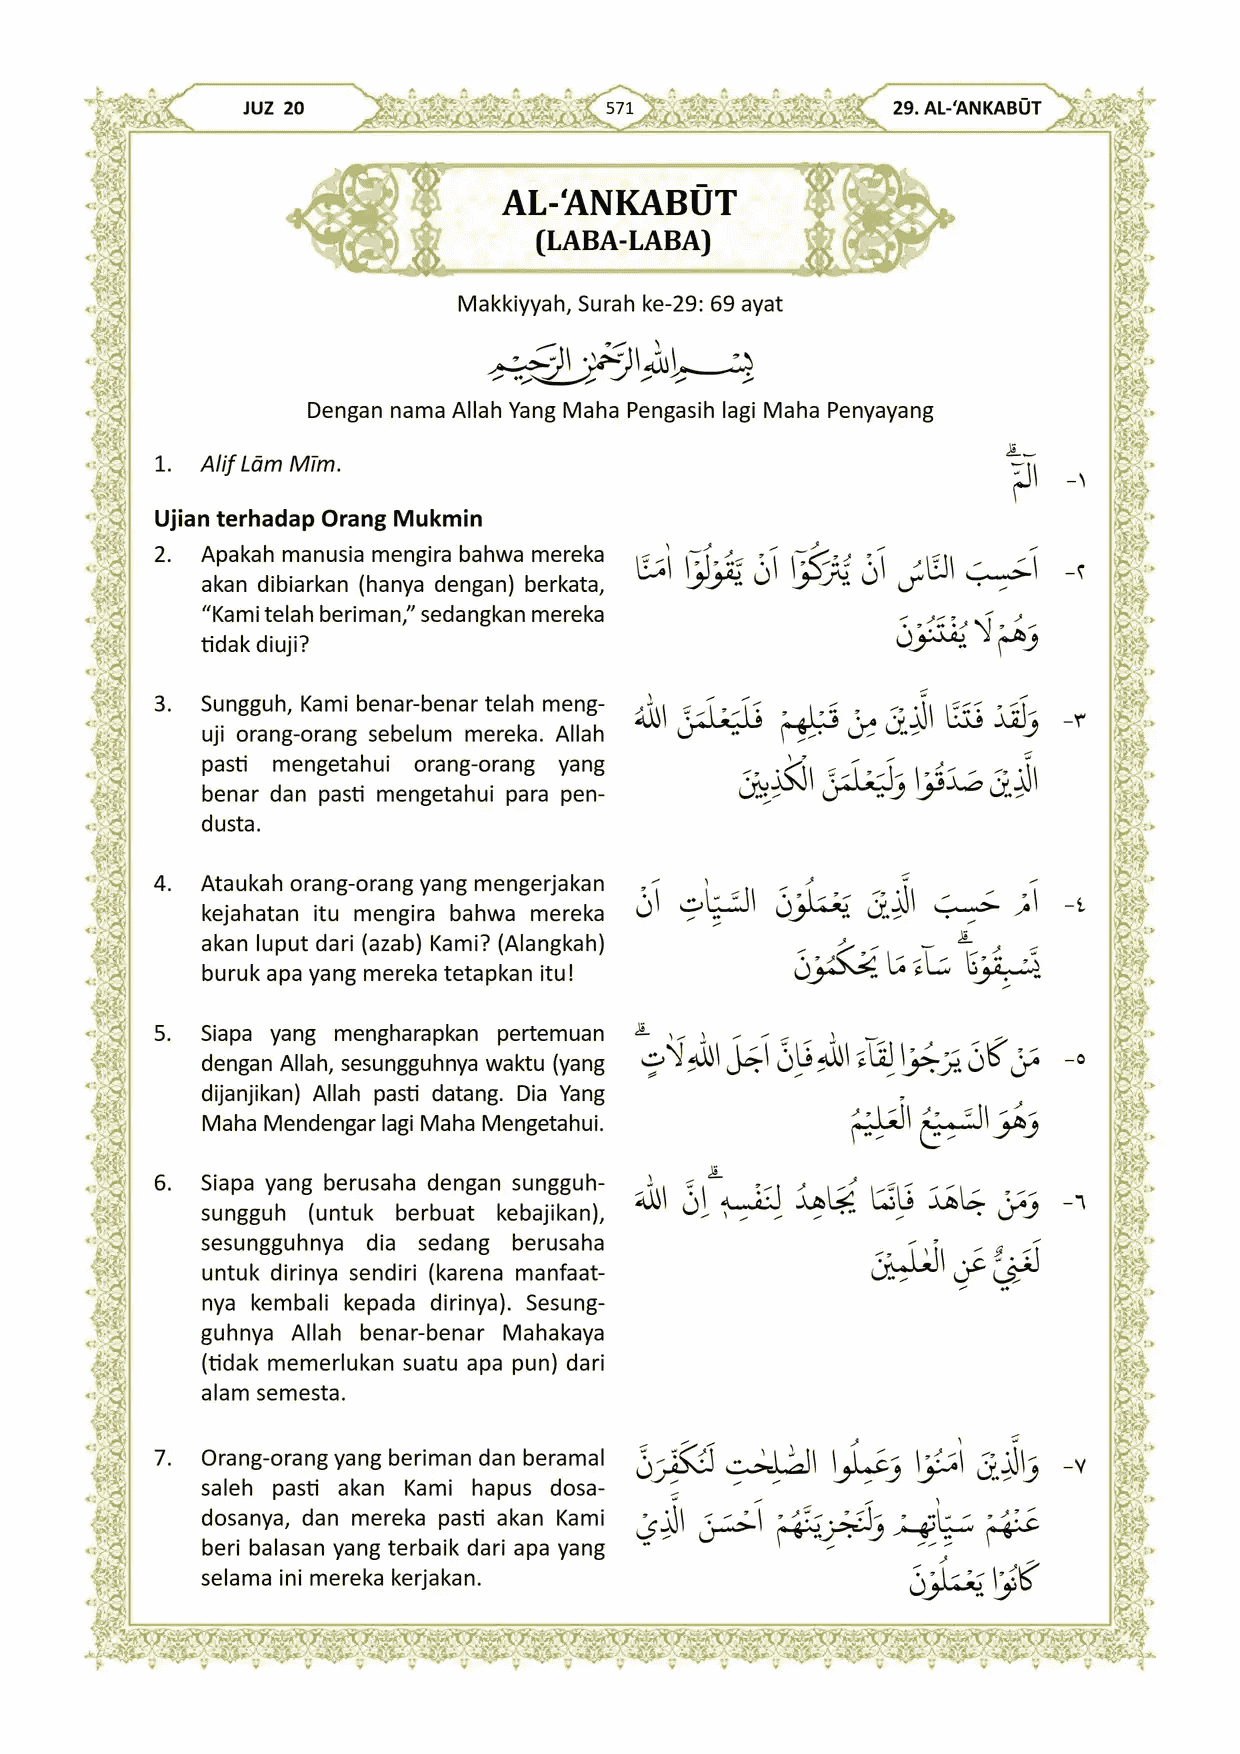 JUZ 20
571
29. AL-‘ANKABŪT
AL-‘ANKABŪT
(LABA-LABA)
Makkiyyah, Surah ke-29: 69 ayat
بِسْمِ اللّٰهِ الرَّحْمٰنِ الرَّحِيْمِ
Dengan nama Allah Yang Maha Pengasih lagi Maha Penyayang
1. Alif Lām Mīm.
١- الۤمّۤ ۗ
Ujian terhadap Orang Mukmin
2. Apakah manusia mengira bahwa mereka
akan dibiarkan (hanya dengan) berkata,
“Kami telah beriman,” sedangkan mereka
tidak diuji?
٢- اَحَسِبَ النَّاسُ اَنْ يُّتْرَكُوْٓا اَنْ يَّقُوْلُوْٓا اٰمَنَّا
وَهُمْ لَا يُفْتَنُوْنَ
3. Sungguh, Kami benar-benar telah meng-
uji orang-orang sebelum mereka. Allah
pasti mengetahui orang-orang yang
benar dan pasti mengetahui para pen-
dusta.
٣- وَلَقَدْ فَتَنَّا الَّذِيْنَ مِنْ قَبْلِهِمْ فَلَيَعْلَمَنَّ اللّٰهُ
الَّذِيْنَ صَدَقُوْا وَلَيَعْلَمَنَّ الْكٰذِبِيْنَ
4. Ataukah orang-orang yang mengerjakan
kejahatan itu mengira bahwa mereka
akan luput dari (azab) Kami? (Alangkah)
buruk apa yang mereka tetapkan itu!
٤- اَمْ حَسِبَ الَّذِيْنَ يَعْمَلُوْنَ السَّيِّاٰتِ اَنْ
يَّسْبِقُوْنَا ۗسَاۤءَ مَا يَحْكُمُوْنَ
5. Siapa yang mengharapkan pertemuan
dengan Allah, sesungguhnya waktu (yang
dijanjikan) Allah pasti datang. Dia Yang
Maha Mendengar lagi Maha Mengetahui.
٥- مَنْ كَانَ يَرْجُوْا لِقَاۤءَ اللّٰهِ فَاِنَّ اَجَلَ اللّٰهِ لَاٰتٍ ۗ
وَهُوَ السَّمِيْعُ الْعَلِيْمُ
6. Siapa yang berusaha dengan sungguh-
sungguh (untuk berbuat kebajikan),
sesungguhnya dia sedang berusaha
untuk dirinya sendiri (karena manfaat-
nya kembali kepada dirinya). Sesung-
guhnya Allah benar-benar Mahakaya
(tidak memerlukan suatu apa pun) dari
alam semesta.
٦- وَمَنْ جَاهَدَ فَاِنَّمَا يُجَاهِدُ لِنَفْسِهٖ ۗاِنَّ اللّٰهَ
لَغَنِيٌّ عَنِ الْعٰلَمِيْنَ
7. Orang-orang yang beriman dan beramal
saleh pasti akan Kami hapus dosa-
dosanya, dan mereka pasti akan Kami
beri balasan yang terbaik dari apa yang
selama ini mereka kerjakan.
٧- وَالَّذِيْنَ اٰمَنُوْا وَعَمِلُوا الصّٰلِحٰتِ لَنُكَفِّرَنَّ
عَنْهُمْ سَيِّاٰتِهِمْ وَلَنَجْزِيَنَّهُمْ اَحْسَنَ الَّذِيْ
كَانُوْا يَعْمَلُوْنَ